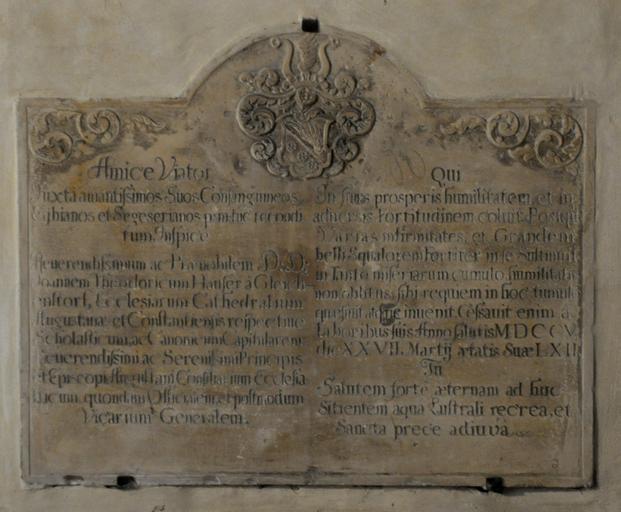 Amice Viator
Juxta amantissimos Suos Consanguineos
et Segeserianos
tum. Inspice
Reverendissimum ac Prænobilem D. D.
Joannem Theodoricum Hauser à Gleich
enstorf, Ecclesiarum Cathedralium
Augustanæ et Constantiensis respective
Scholasticum, ac Canonicum Capitularem
Reverendissimi ac Serenissimi Principis
et Episcopi Augustani Consiliarium Ecclesia
sticum, quondam Officialem, et postmodum
Vicarium Generalem.
Qui
In suis prosperis humilitatem, et in
adversis Fortitudinem coluit. Postqu
Varias infirmitates, et Grandem
belli Squalorem Fortiter in se Sustinuit
in tanto miseriarum cumulo, humilitatis
non oblitus, sibi requiem in hoc tumulo
invenit. Cessavit enim à
laboribus suis Anno salutis MDCCV
die XXVII. Martij ætatis Suæ LXII
Tu
Salutem forte æternam ad huc
Sitientem aqua lustrali recrea, et
Sancta prece adiuva